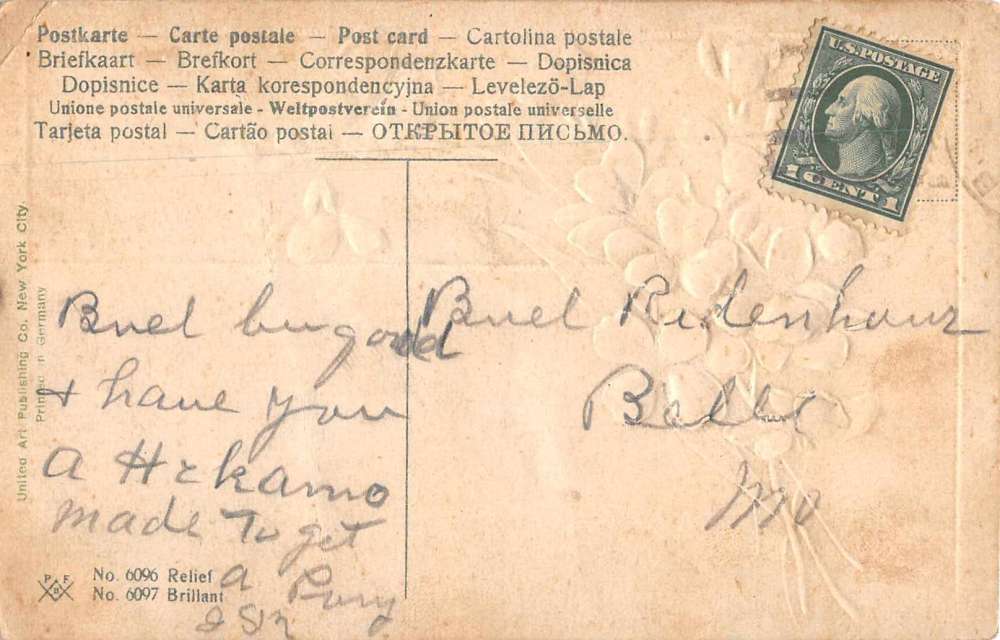 Postkarte — Carte postale — Post card — Cartolina postale
Briefkaart — Brefkort — Correspondenzkarte — Dopisnica
Dopisnice — Karta korespondencyjna — Levelezö-Lap
Unione postale universale - Weltpostverein - Union postale universelle
Tarjeta postal — Cartão postal — ОТКРЫТОЕ ПИСЬМО.
U.S. POSTAGE
1 CENT 1
United Art Publishing Co. New York City
Printed in Germany
Buel Ridenhour
Belle
Mo
Buel bu good
+ have you
a
made To get
a Pony
No. 6096 Relief
No. 6097 Brillant
P F B